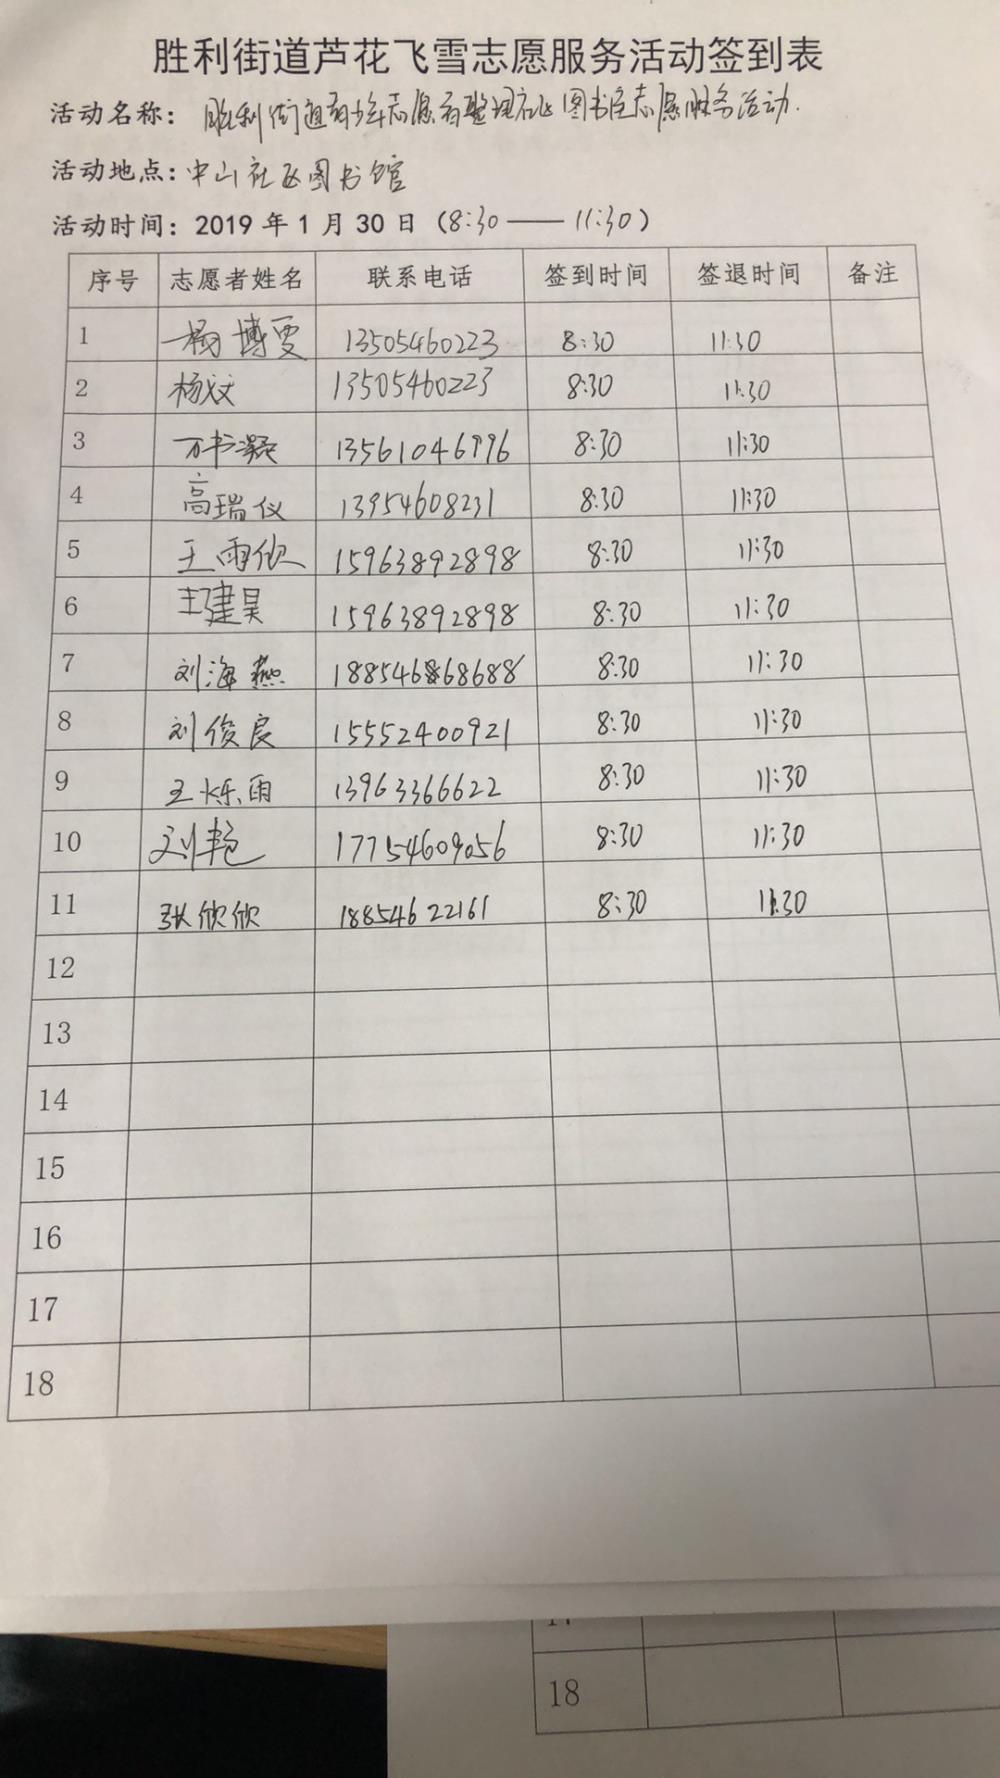 胜利街道芦花飞雪志愿服务活动签到表
活动名称： 胜利街道青少年志愿者整理社区图书室志愿服务活动.
活动地点：中山社区图书馆
活动时间：2019 年 1 月 30 日（8:30 —— 11:30）
序号 志愿者姓名 联系电话 签到时间 签退时间 备注
1 杨博雯 13505460223 8:30 11:30
2 杨文 13505460223 8:30 11:30
3 万书凝 13561046996 8:30 11:30
4 高瑞仪 13954608231 8:30 11:30
5 王雨欣 15963892898 8:30 11:30
6 王建昊 15963892898 8:30 11:30
7 刘海燕 18854686868​8 8:30 11:30
8 刘俊良 15552400921 8:30 11:30
9 王烁雨 13963366622 8:30 11:30
10 刘艳 17754609056 8:30 11:30
11 张欣欣 18854622161 8:30 11:30
12
13
14
15
16
17
18
18